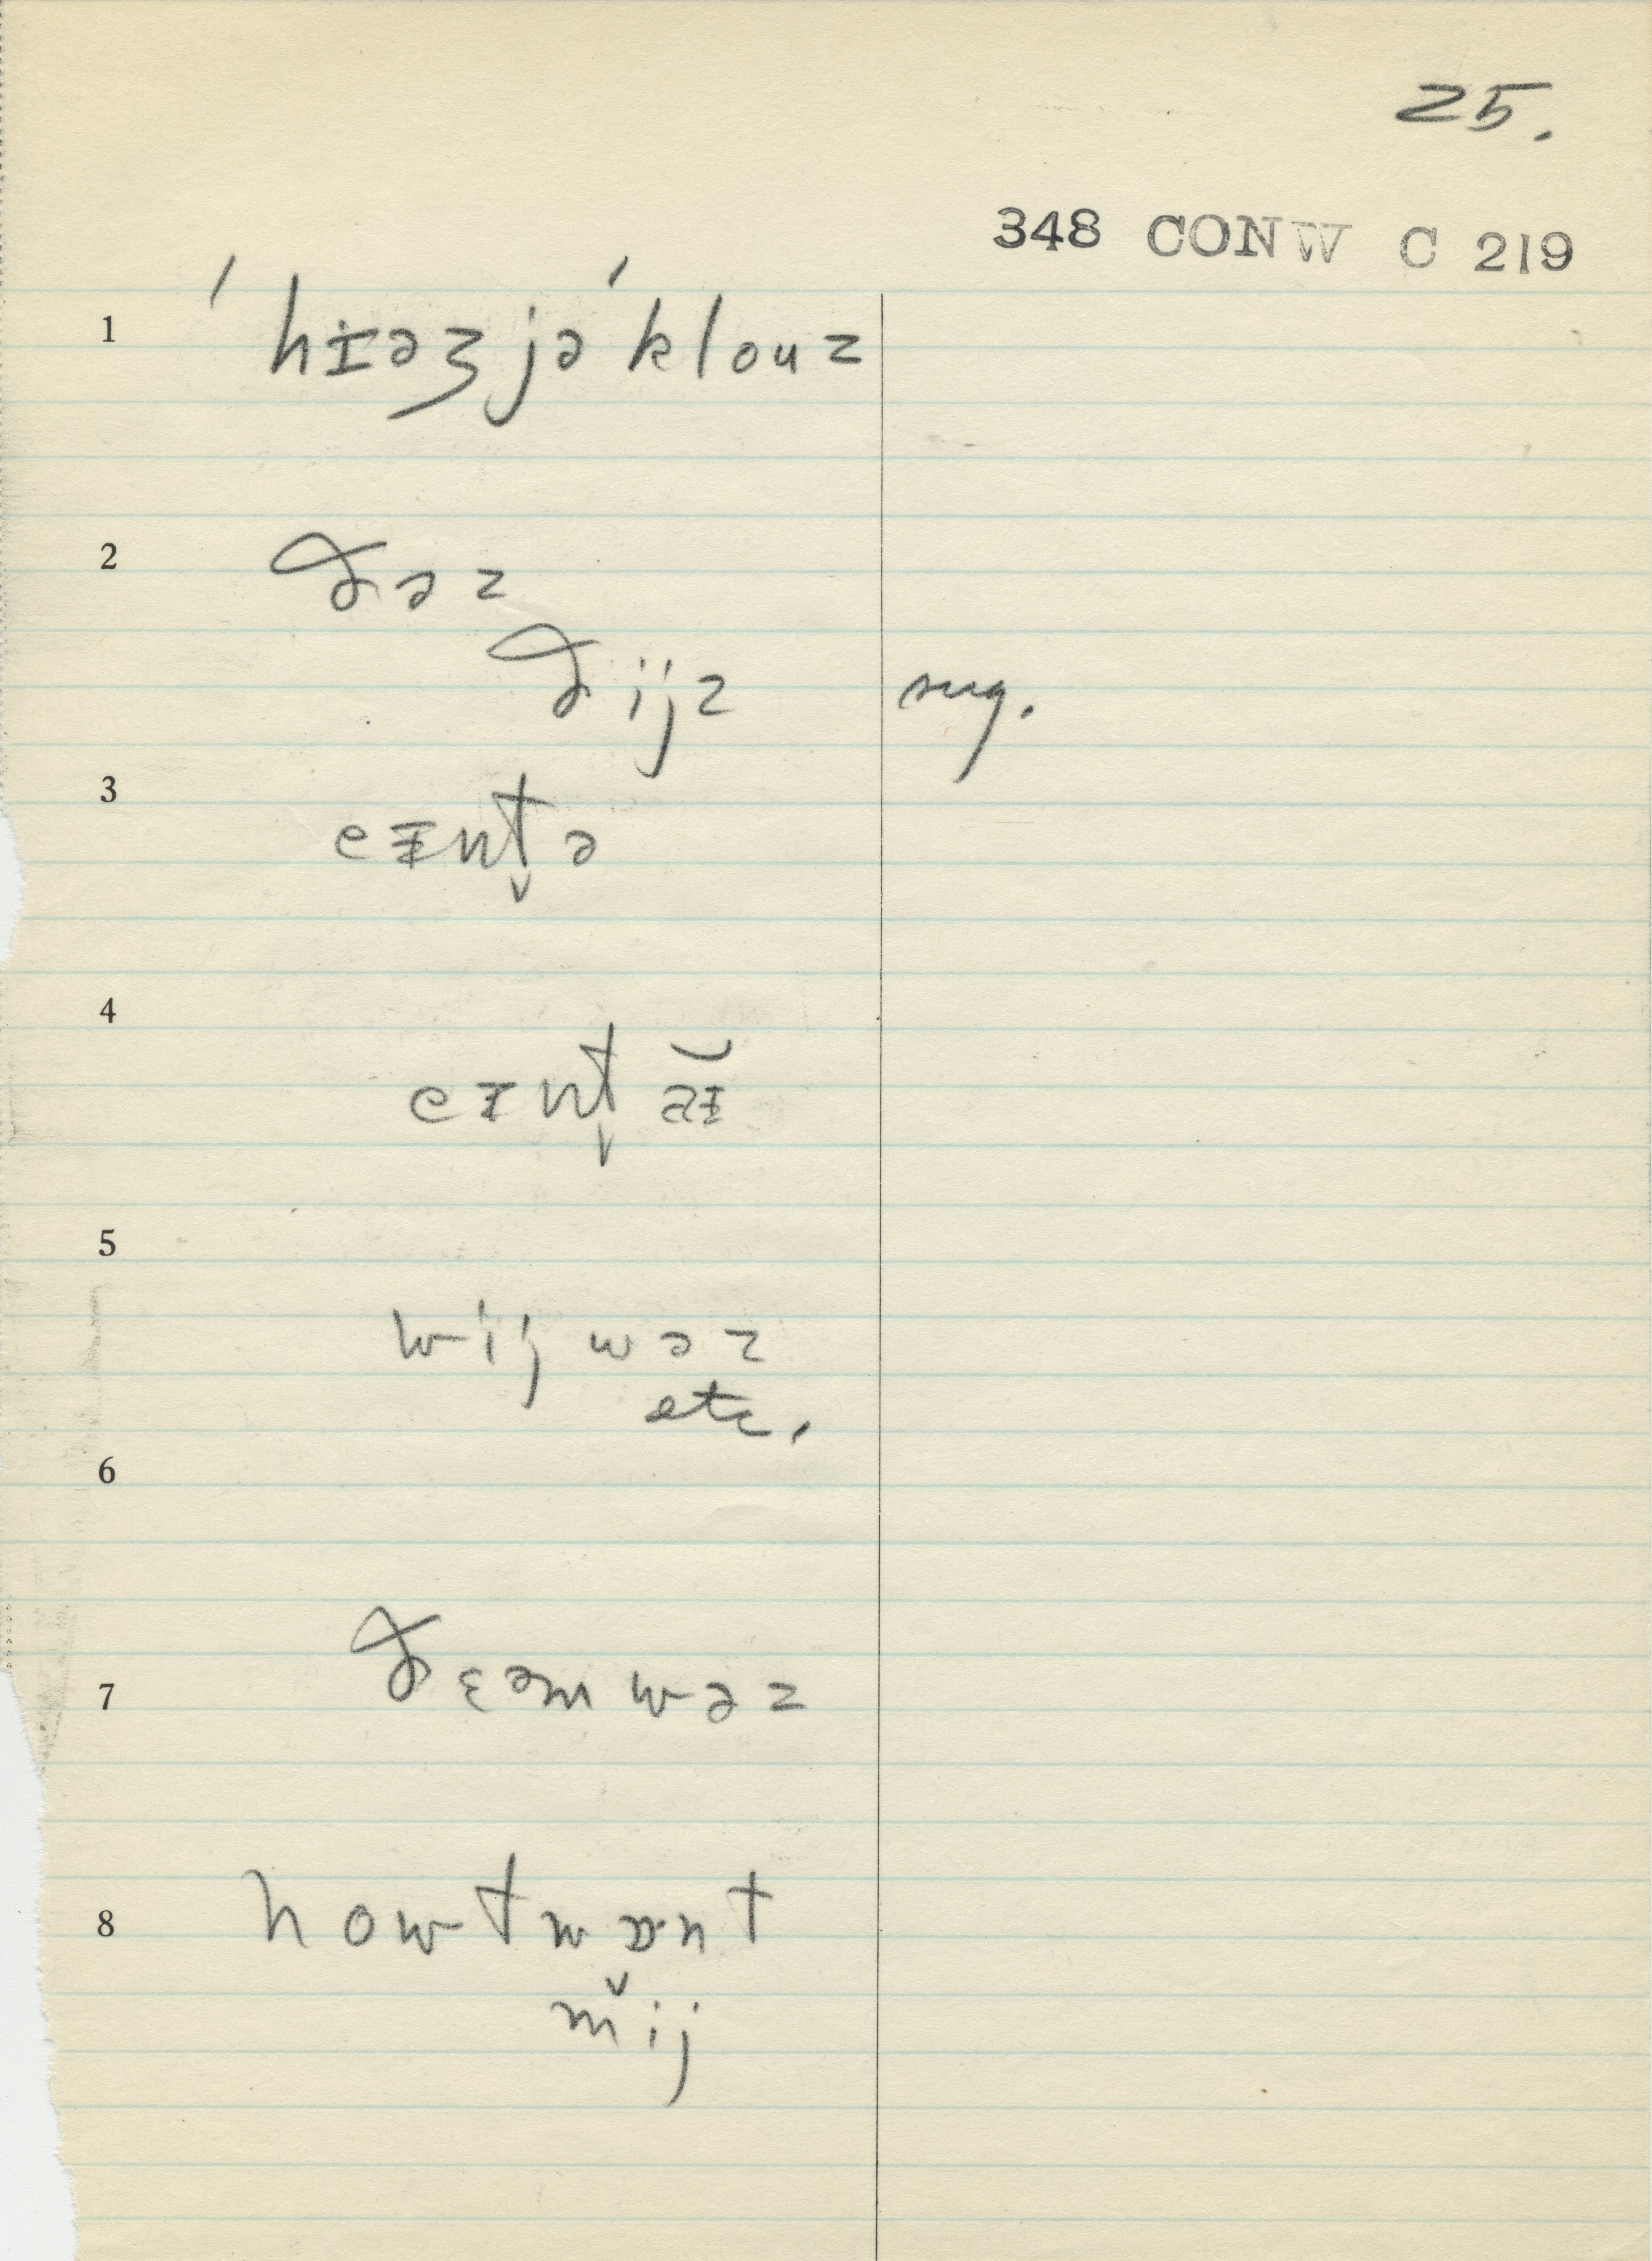 25.
348 CONW C 219
1 ˈhɪəʒjəˈklouz
2 ðəz
ðijz sug.
3 eɪnt̬ə
4 eɪnt̬ə̆ɪ
5 wij wəz
etc.
6
7 ðɛəm wəz
8 howtwɒnt
m̌ij